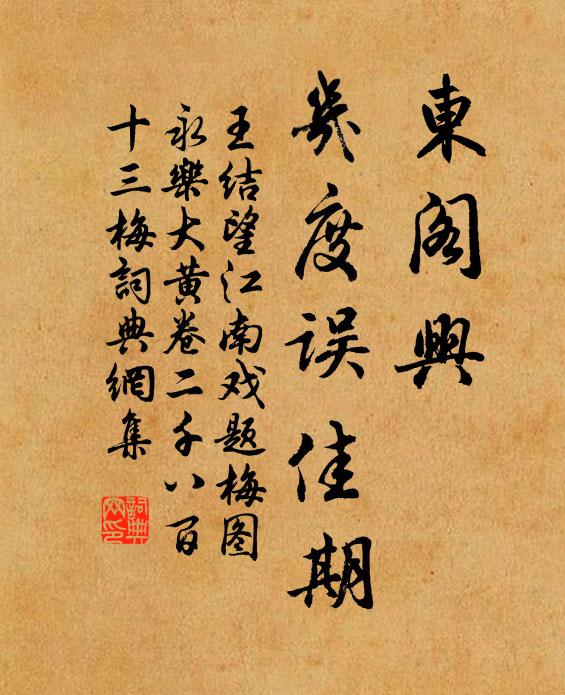 東閣興
幾度誤佳期
王结望江南戏题梅图
永樂大黄卷二千八百
十三梅詞典網集
詞典网印